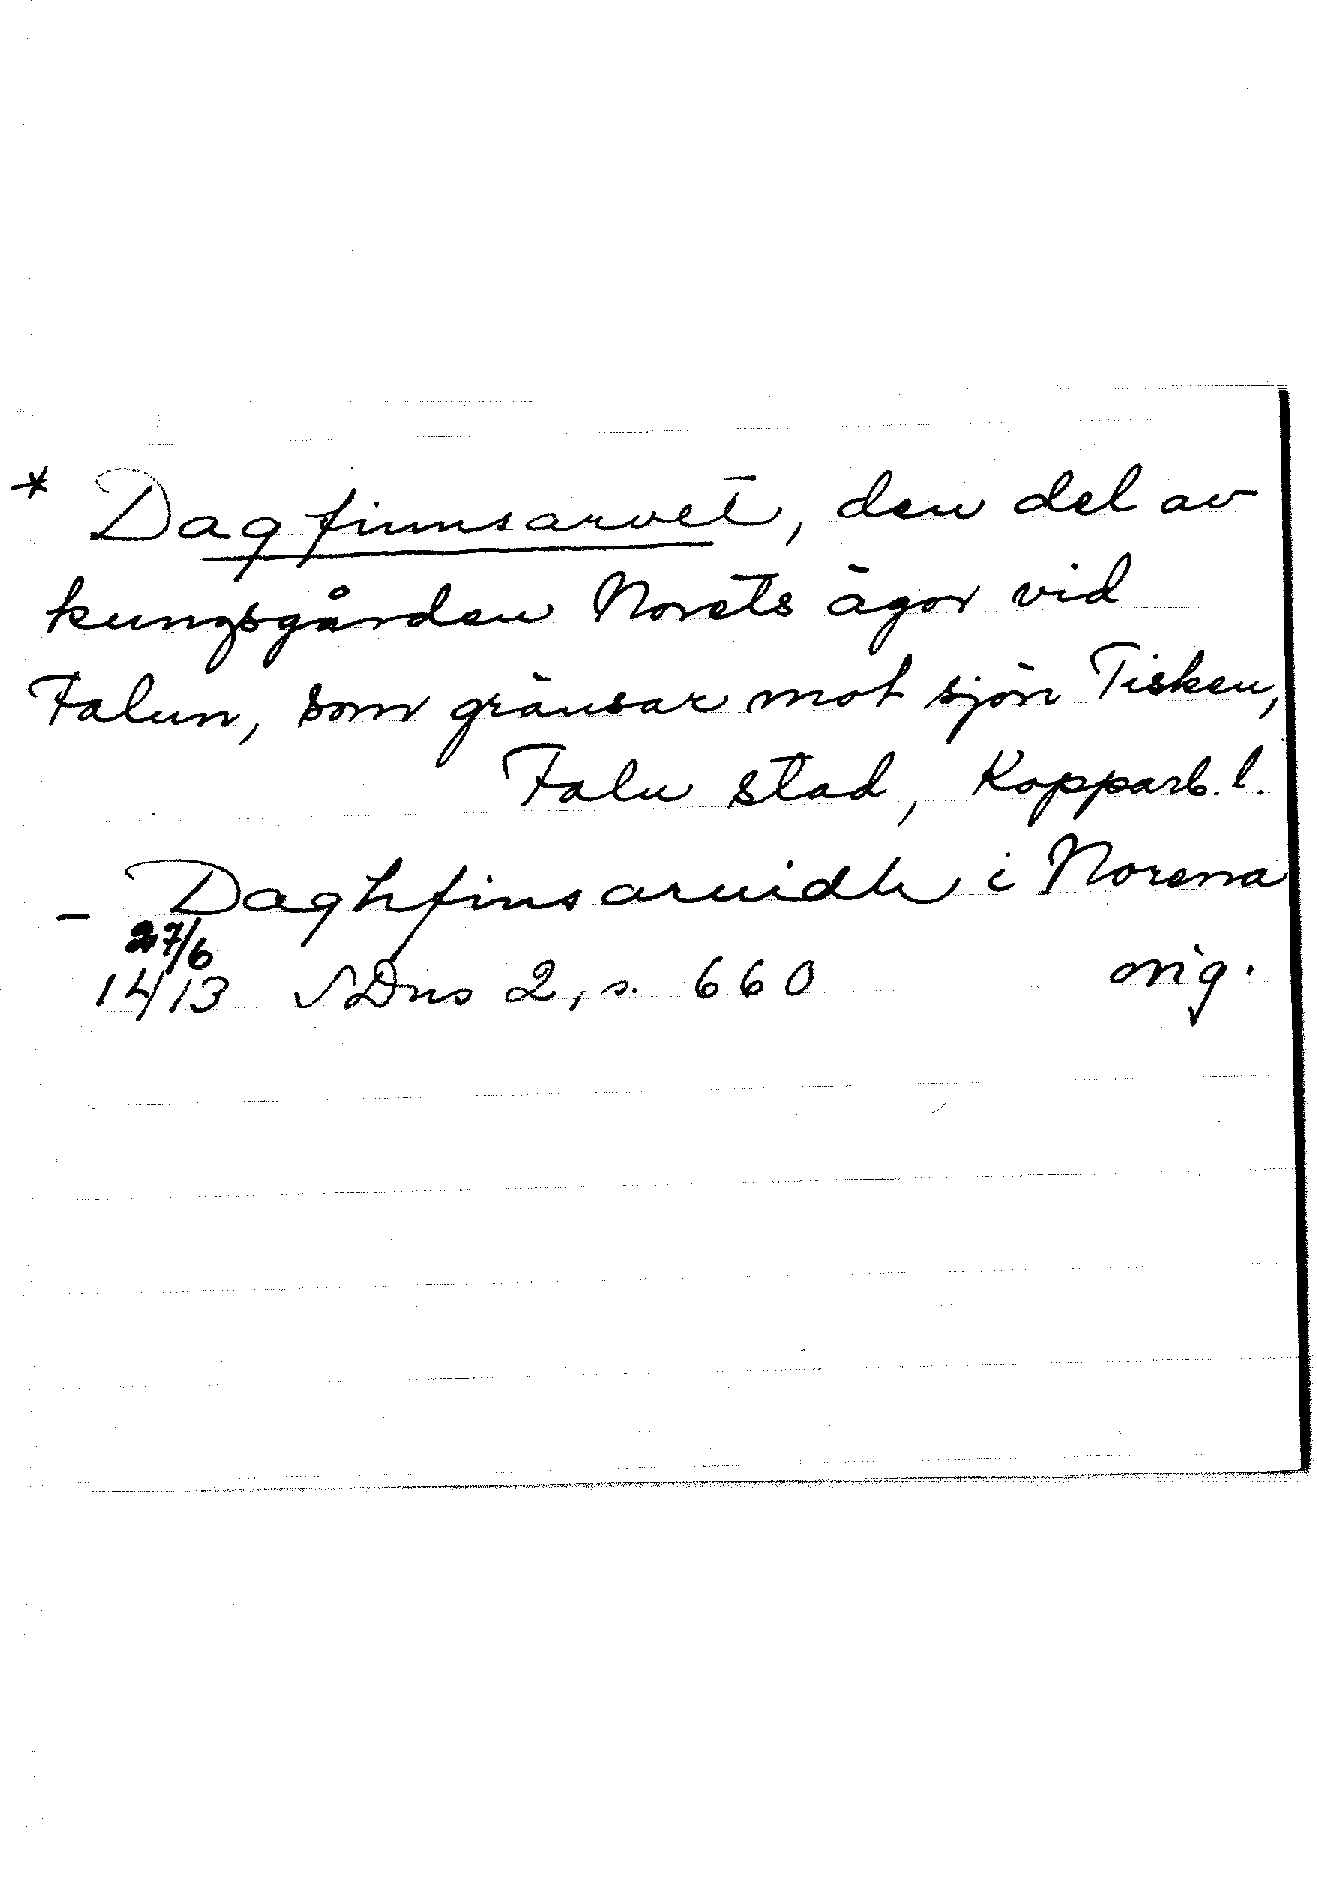 * Dagfinnsarvet, den del av
kungsgården Norets ägor vid
Falun, som gränsar mot sjön Tisken,
Falu stad, Kopparb. l.
– Daghfinsaruidh i Norena
27/6
1413 SDns 2, s. 660 orig.